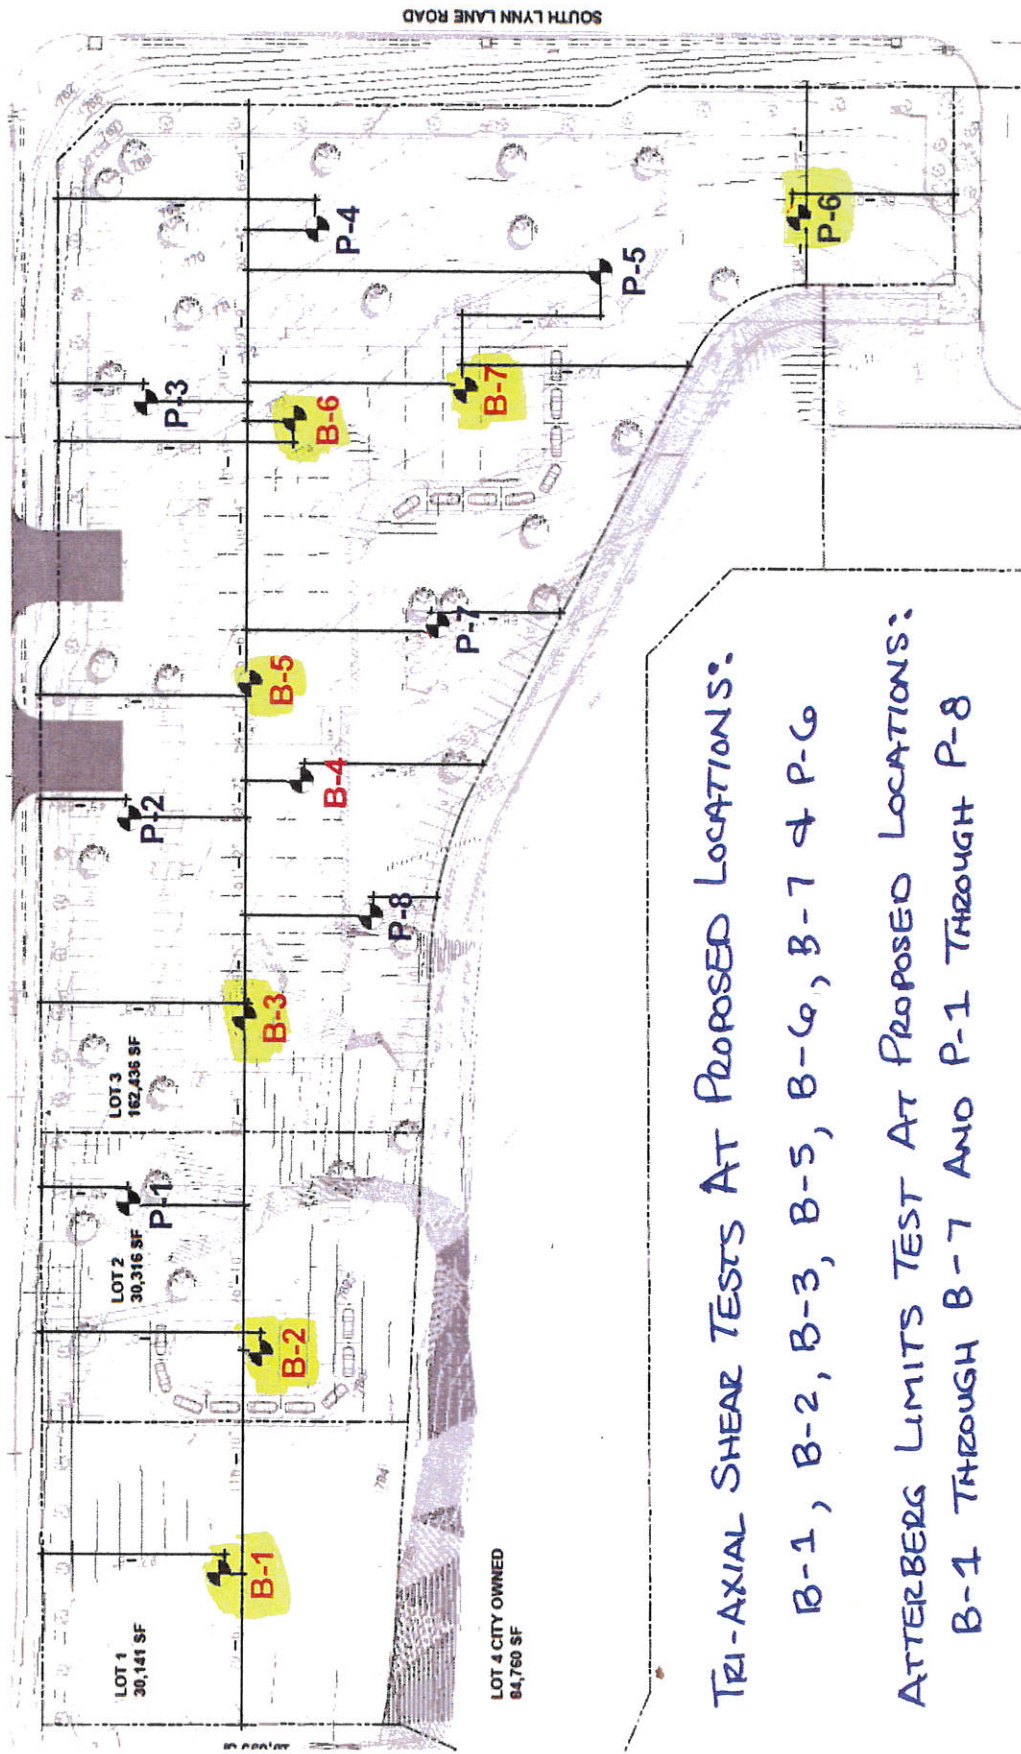 SOUTH LYNN LANE ROAD
LOT 1
30,141 SF
LOT 2
30,316 SF
LOT 3
162,436 SF
LOT 4 CITY OWNED
84,760 SF
P-1
P-2
P-3
P-4
P-5
P-6
P-7
P-8
B-1
B-2
B-3
B-4
B-5
B-6
B-7
770
TRI-AXIAL SHEAR TESTS AT PROPOSED LOCATIONS:
B-1, B-2, B-3, B-5, B-6, B-7 & P-6
ATTERBERG LIMITS TEST AT PROPOSED LOCATIONS:
B-1 THROUGH B-7 AND P-1 THROUGH P-8